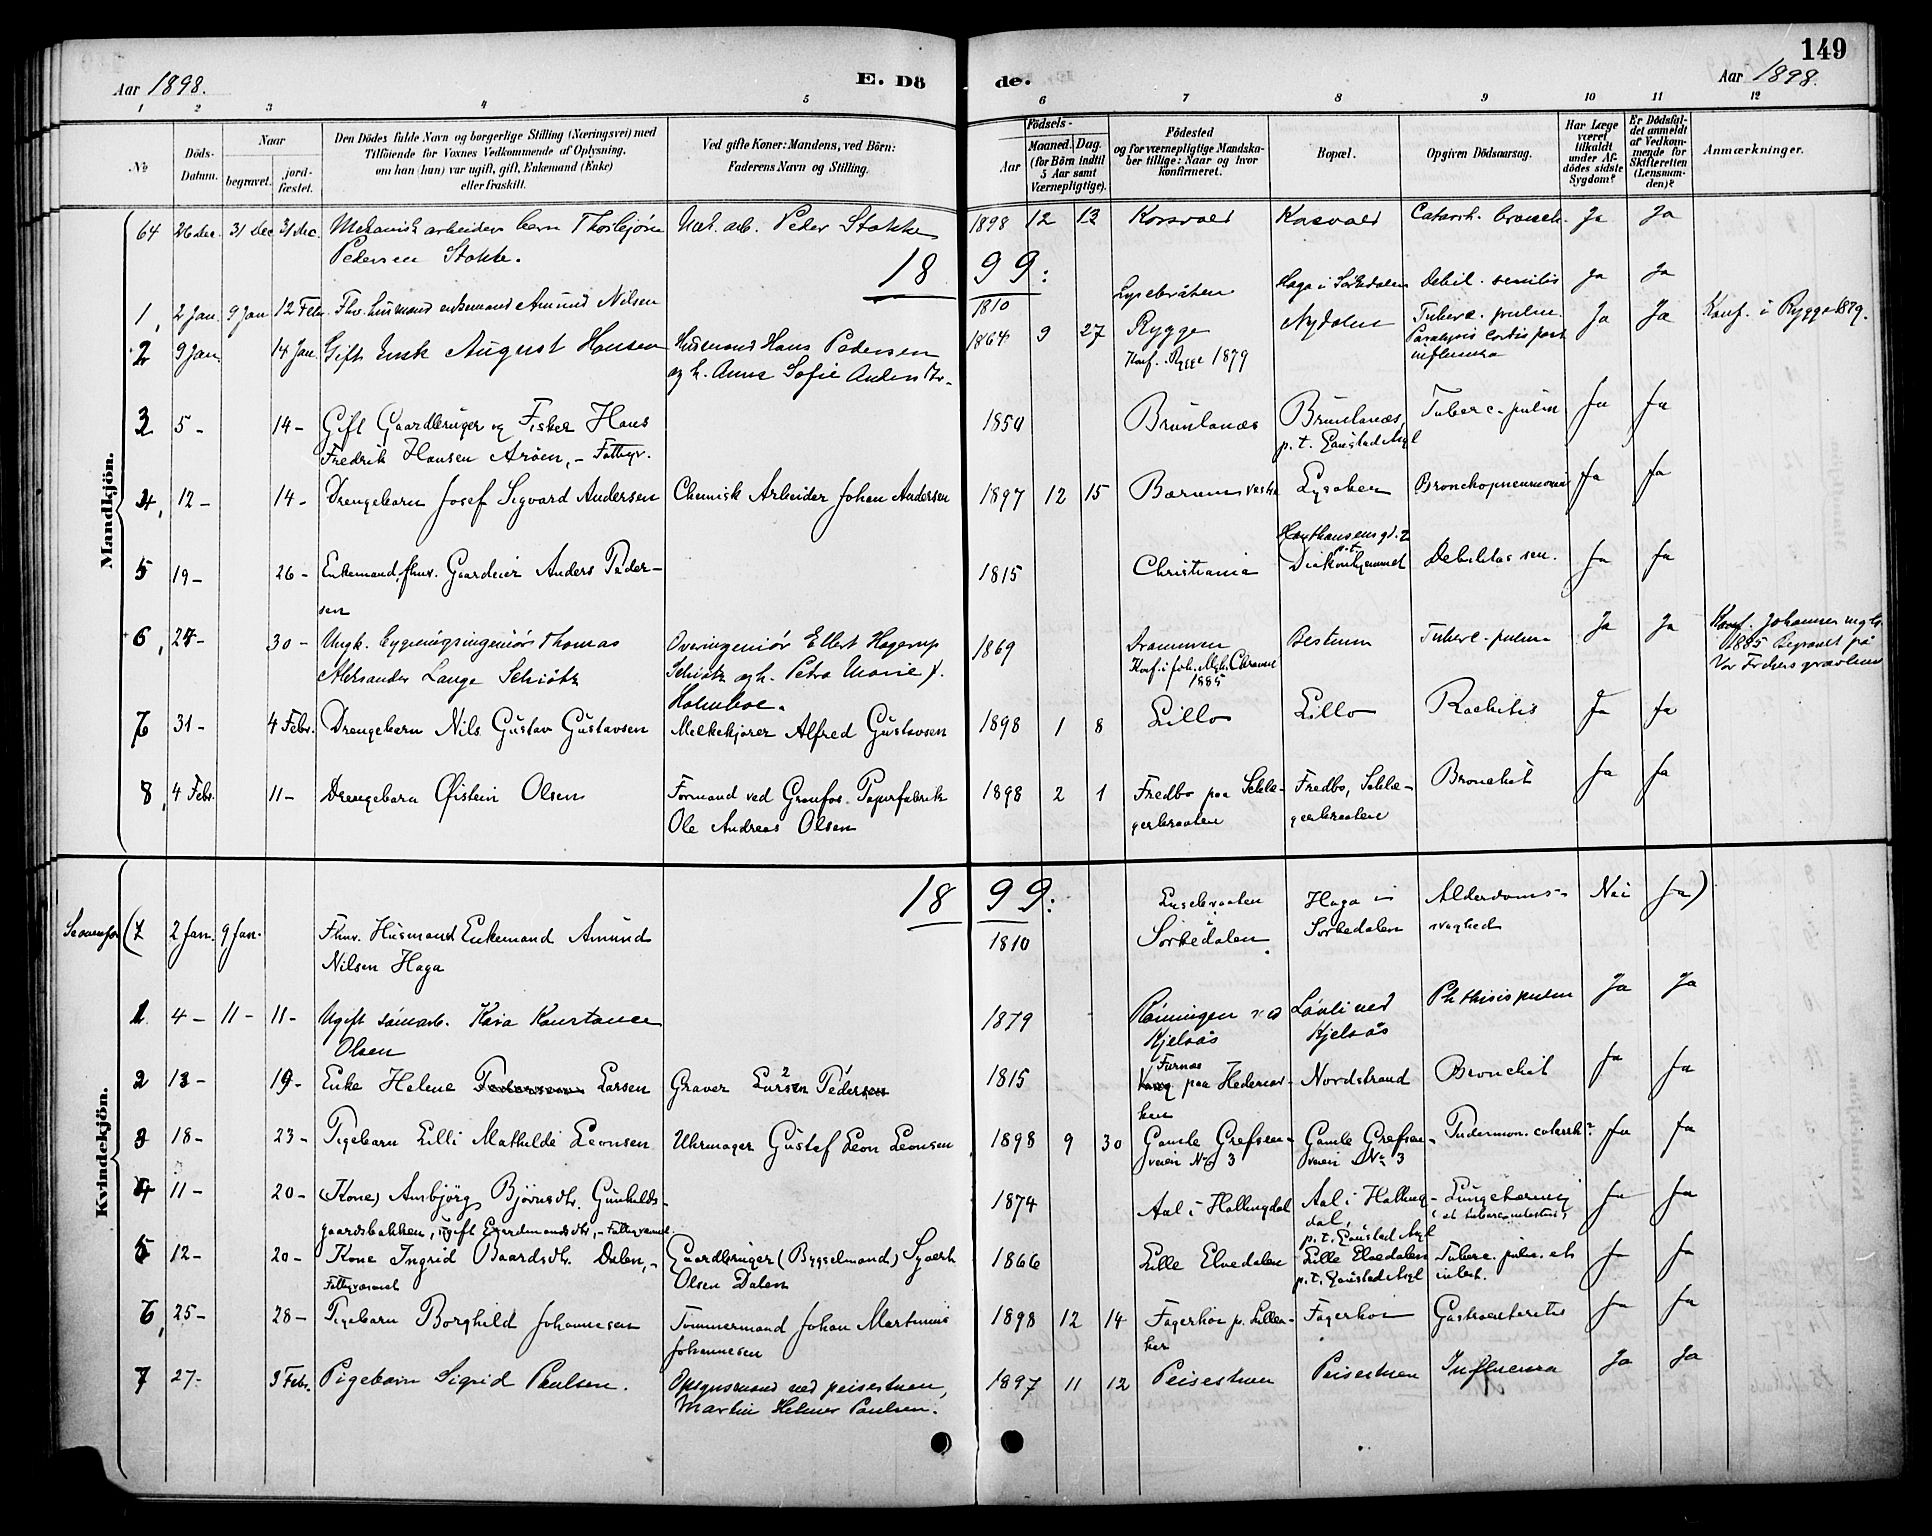 149
Aar 1898.
E. Dö
de.
Aar 1898.
1 2 3 4 5 6 7 8 9 10 11 12
No
Döds-
Datum.
Naar
begravet.
jord-
fæstet.
Den Dödes fulde Navn og borgerlige Stilling (Næringsvei) med
Tilföiende for Voxnes Vedkommende af Oplysning,
om han (hun) var ugift, gift, Enkemand (Enke)
eller fraskilt.
Ved gifte Koner: Mandens, ved Börn:
Faderens Navn og Stilling.
Födsels-
Aar
Maaned. Dag.
(for Börn indtil
5 Aar samt
Værnepligtige).
Födested
og for værnepligtige Mandska-
ber tillige: Naar og hvor
konfirmeret.
Bopæl.
Opgiven Dödsaarsag.
Har Læge
været
tilkaldt
under Af-
dödes sidste
Sygdom?
Er Dödsfal-
det anmeldt
af Vedkom-
mende for
Skifteretten
(Lensman-
den)?
Anmærkninger.
Mandkjön.
64 26 dec. 31 dec 31 dec. Mekanisk arbeiders barn Thorbjörn Mek. arb. Peder Stokke 1898 12 13 Korsvold Korsvold Catarrh. bronch. Ja Ja
Pedersen Stokke.
18 99:
1, 2 Jan. 9 Jan 12 Febr. Fhv. husmand enkemand Amund Nilsen 1810 Lysebråten Haga i Sörkedalen Debil. senilis Ja Ja
2 9 Jan. 14 Jan. Gift August Hansen Husmand Hans Pedersen 1864 9 27 Rygge Nydalen Tuberc. pulm. Ja Ja Konf. i Rygge 1879.
og h. Anne Sofie Konf. Rygge 1879 Paralysis cordis post
influenza
3 5 - 14 - Gift Gaardbruger og Fisker Hans 1850 Brunlanæs Brunlanæs, Tuberc. pulm Ja Ja
Fredrik Hansen Aröen, - Fattigv. p. t. Gaustad Asyl
4, 12 - 14 - Drengebarn Josef Sigvard Andersen Chemisk Arbeider Johan Andersen 1897 12 15 Bærums vestre Lysaker Bronchopneumonia Ja Ja
5 19 - 26 - Enkemand, fhv. Gaardeier Anders Peder- 1815 Christiania p.t. Debilitas sen. Ja Ja
sen
6, 27 - 30 - Ungk. bygningsingeniör Thomas Overingeniör Ellert Hagerup 1869 Drammen Bestum Tuberc. pulm Ja Ja Konf. Johannes mgh.
Aleksander Lange Schiötz Schiötz og h. Petra Marie f. Konf. i Joh. Mgh. Chrania 1885 Begravet på
Holmboe. 1885 Vor Frelsers gravlund
7 31 - 4 Febr. Drengebarn Nils Gustav Gustavsen Melkekjörer Alfred Gustavsen 1898 1 8 Lillo Lillo Rachitis Ja Ja
8, 4 Febr. 11 - Drengebarn Øistein Olsen Formand ved Granfos Papirfabrik 1898 2 1 Fredbo paa Sekke- Fredbo, Sekke- Bronchit Ja Ja
Ole Andreas Olsen
18 99:
(1 2 Jan. 9 Jan. Fhv. Husmand Enkemand Amund 1810 Lysebraaten Haga i Alderdoms- Nei Ja)
Nilsen Haga i Sörkedalen Sörkedalen svaghed
Kvindekjön.
1 4 - 11 - 11 - Ugift Kaia Konstance 1879 Rönningen ved Lövli ved Phthisis pulm Ja Ja
Olsen Kjelsås Kjelsås
2 13 - 19 - Enke Helene Pedersen Larsen Graver Larsen Pedersen 1815 Furnes paa Hedemar- Nordstrand Bronchit Ja Ja
ken
3 18 - 23 - Pigebarn Lilli Mathilde Leonsen Uhrmager Gustaf Leon Leonsen 1898 9 30 Gamle Grefsen- Gamle Grefsen- Ja Ja
veien No 3 veien No 3
4 11 - 20 - (Kone) Ambjörg Björnsdtr. Gunhilds- 1874 Aal i Hallingdal Aal i Halling- Lungebetænd. Ja Ja
gaardsbakken, ugift - Fattigvæsenet dal,
p. t. Gaustad Asyl
5 12 - 20 - Kone Ingrid Baardsdtr. Dalen, - Gaardbruger (Bygselmand) Syvert 1866 Lille Elvedalen Lille Elvedalen Tuberc. pulm. et Ja Ja
Fattigvæsenet Olsen Dalen p. t. Gaustad Asyl intest.
6, 25 - 28 - Pigebarn Borghild Johannesen Tömmermand Johan Martinius 1898 12 14 Fagerhöi p. Lillea- Fagerhöi Gastroenteritis Ja Ja
Johannesen ker
7 27 - 3 Febr. Pigebarn Sigrid Paulsen. Opsynsmand ved Peisestuen, 1897 11 12 Peisestuen Peisestuen Influenza Ja Ja
Martin Helmer Paulsen.